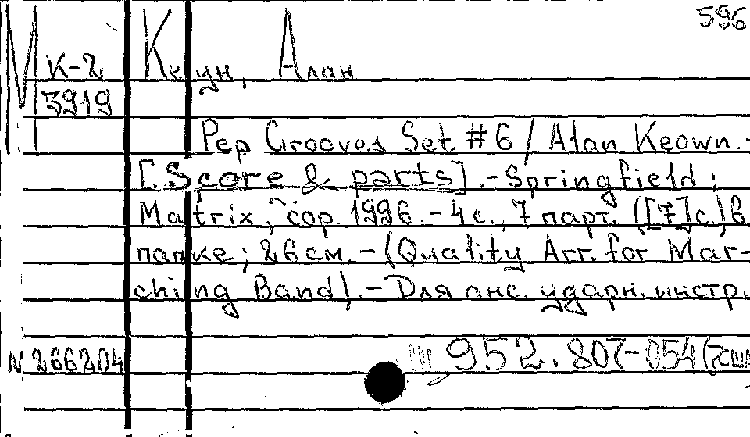 596
М К-2 Кеун, Алан
3919
Pep Grooves Set #6 / Alan Keown.-
[Score & parts].-Springfield:
Matrix, cop. 1996.-4с., 7 парт. ([7]с.) в
папке; 26см.-(Quality Arr. for Mar-
ching Band).-Для анс. ударн. инстр.
N 266204 952.807-054(7США